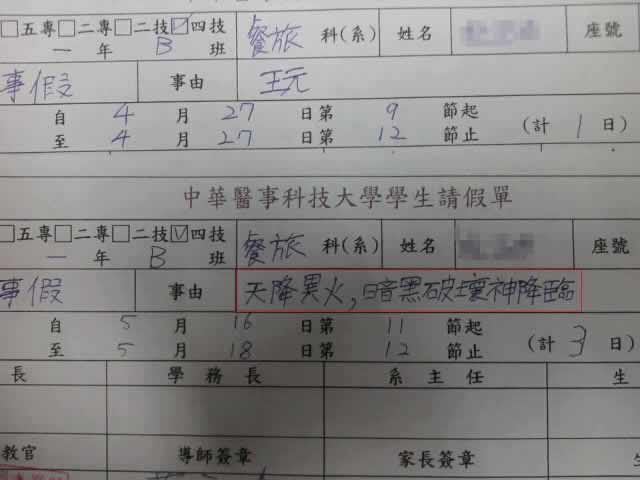 □五專□二專□二技☑四技 餐旅 科(系) 姓名 座號
一 年 B 班
事假 事由 玨元
自 4 月 27 日第 9 節起 (計 1 日)
至 4 月 27 日第 12 節止
中華醫事科技大學學生請假單
□五專□二專□二技☑四技 餐旅 科(系) 姓名 座號
一 年 B 班
事假 事由 天降異火,暗黑破壞神降臨
自 5 月 16 日第 11 節起 (計 3 日)
至 5 月 18 日第 12 節止
長 學務長 系主任 生
教官 導師簽章 家長簽章